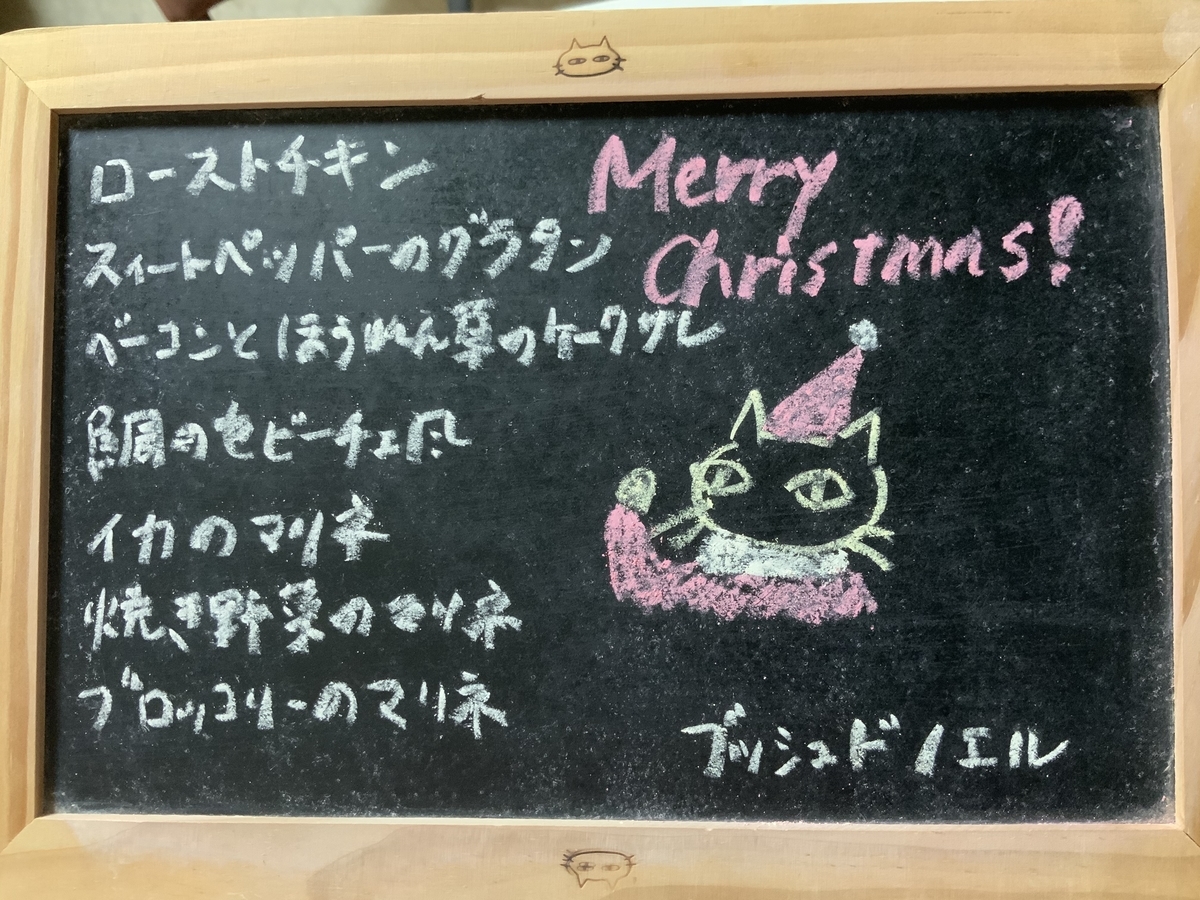 ローストチキン
スィートペッパーのグラタン
ベーコンとほうれん草のケークサレ
鯛のセビーチェ風
イカのマリネ
焼き野菜のマリネ
ブロッコリーのマリネ
Merry
Christmas!
ブッシュドノエル